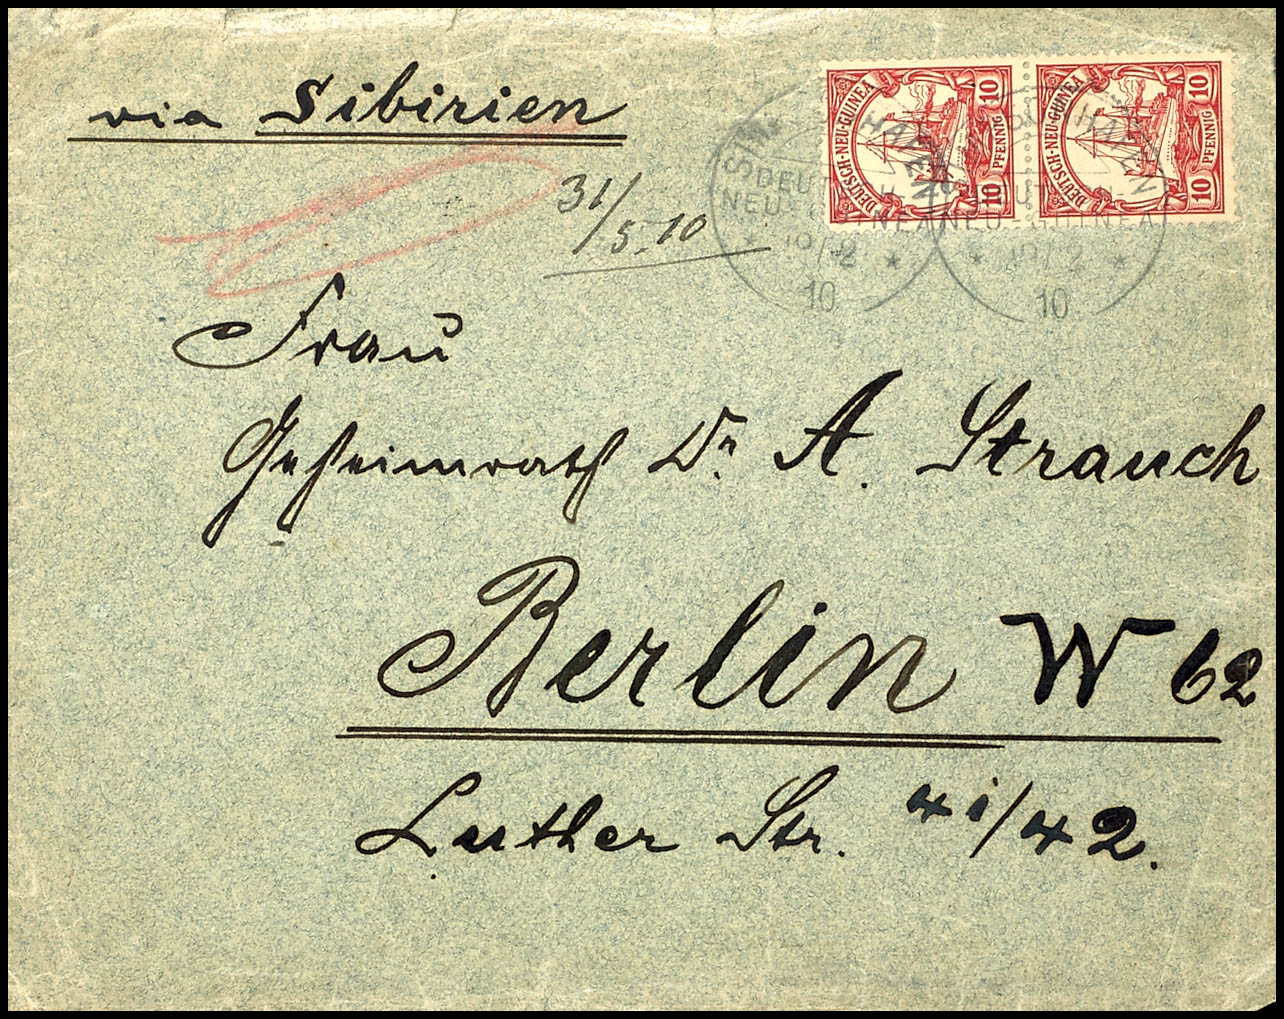 via Sibirien
DEUTSCH-NEU-GUINEA
10 PFENNIG 10
DEUTSCH-NEU-GUINEA
10 PFENNIG 10
HAFEN
NEU-GUINEA
10
HAFEN
NEU-GUINEA
10
31/5.10
Frau
Geheimrath Dr. A. Strauch
Berlin W 62
Luther Str. 41/42.